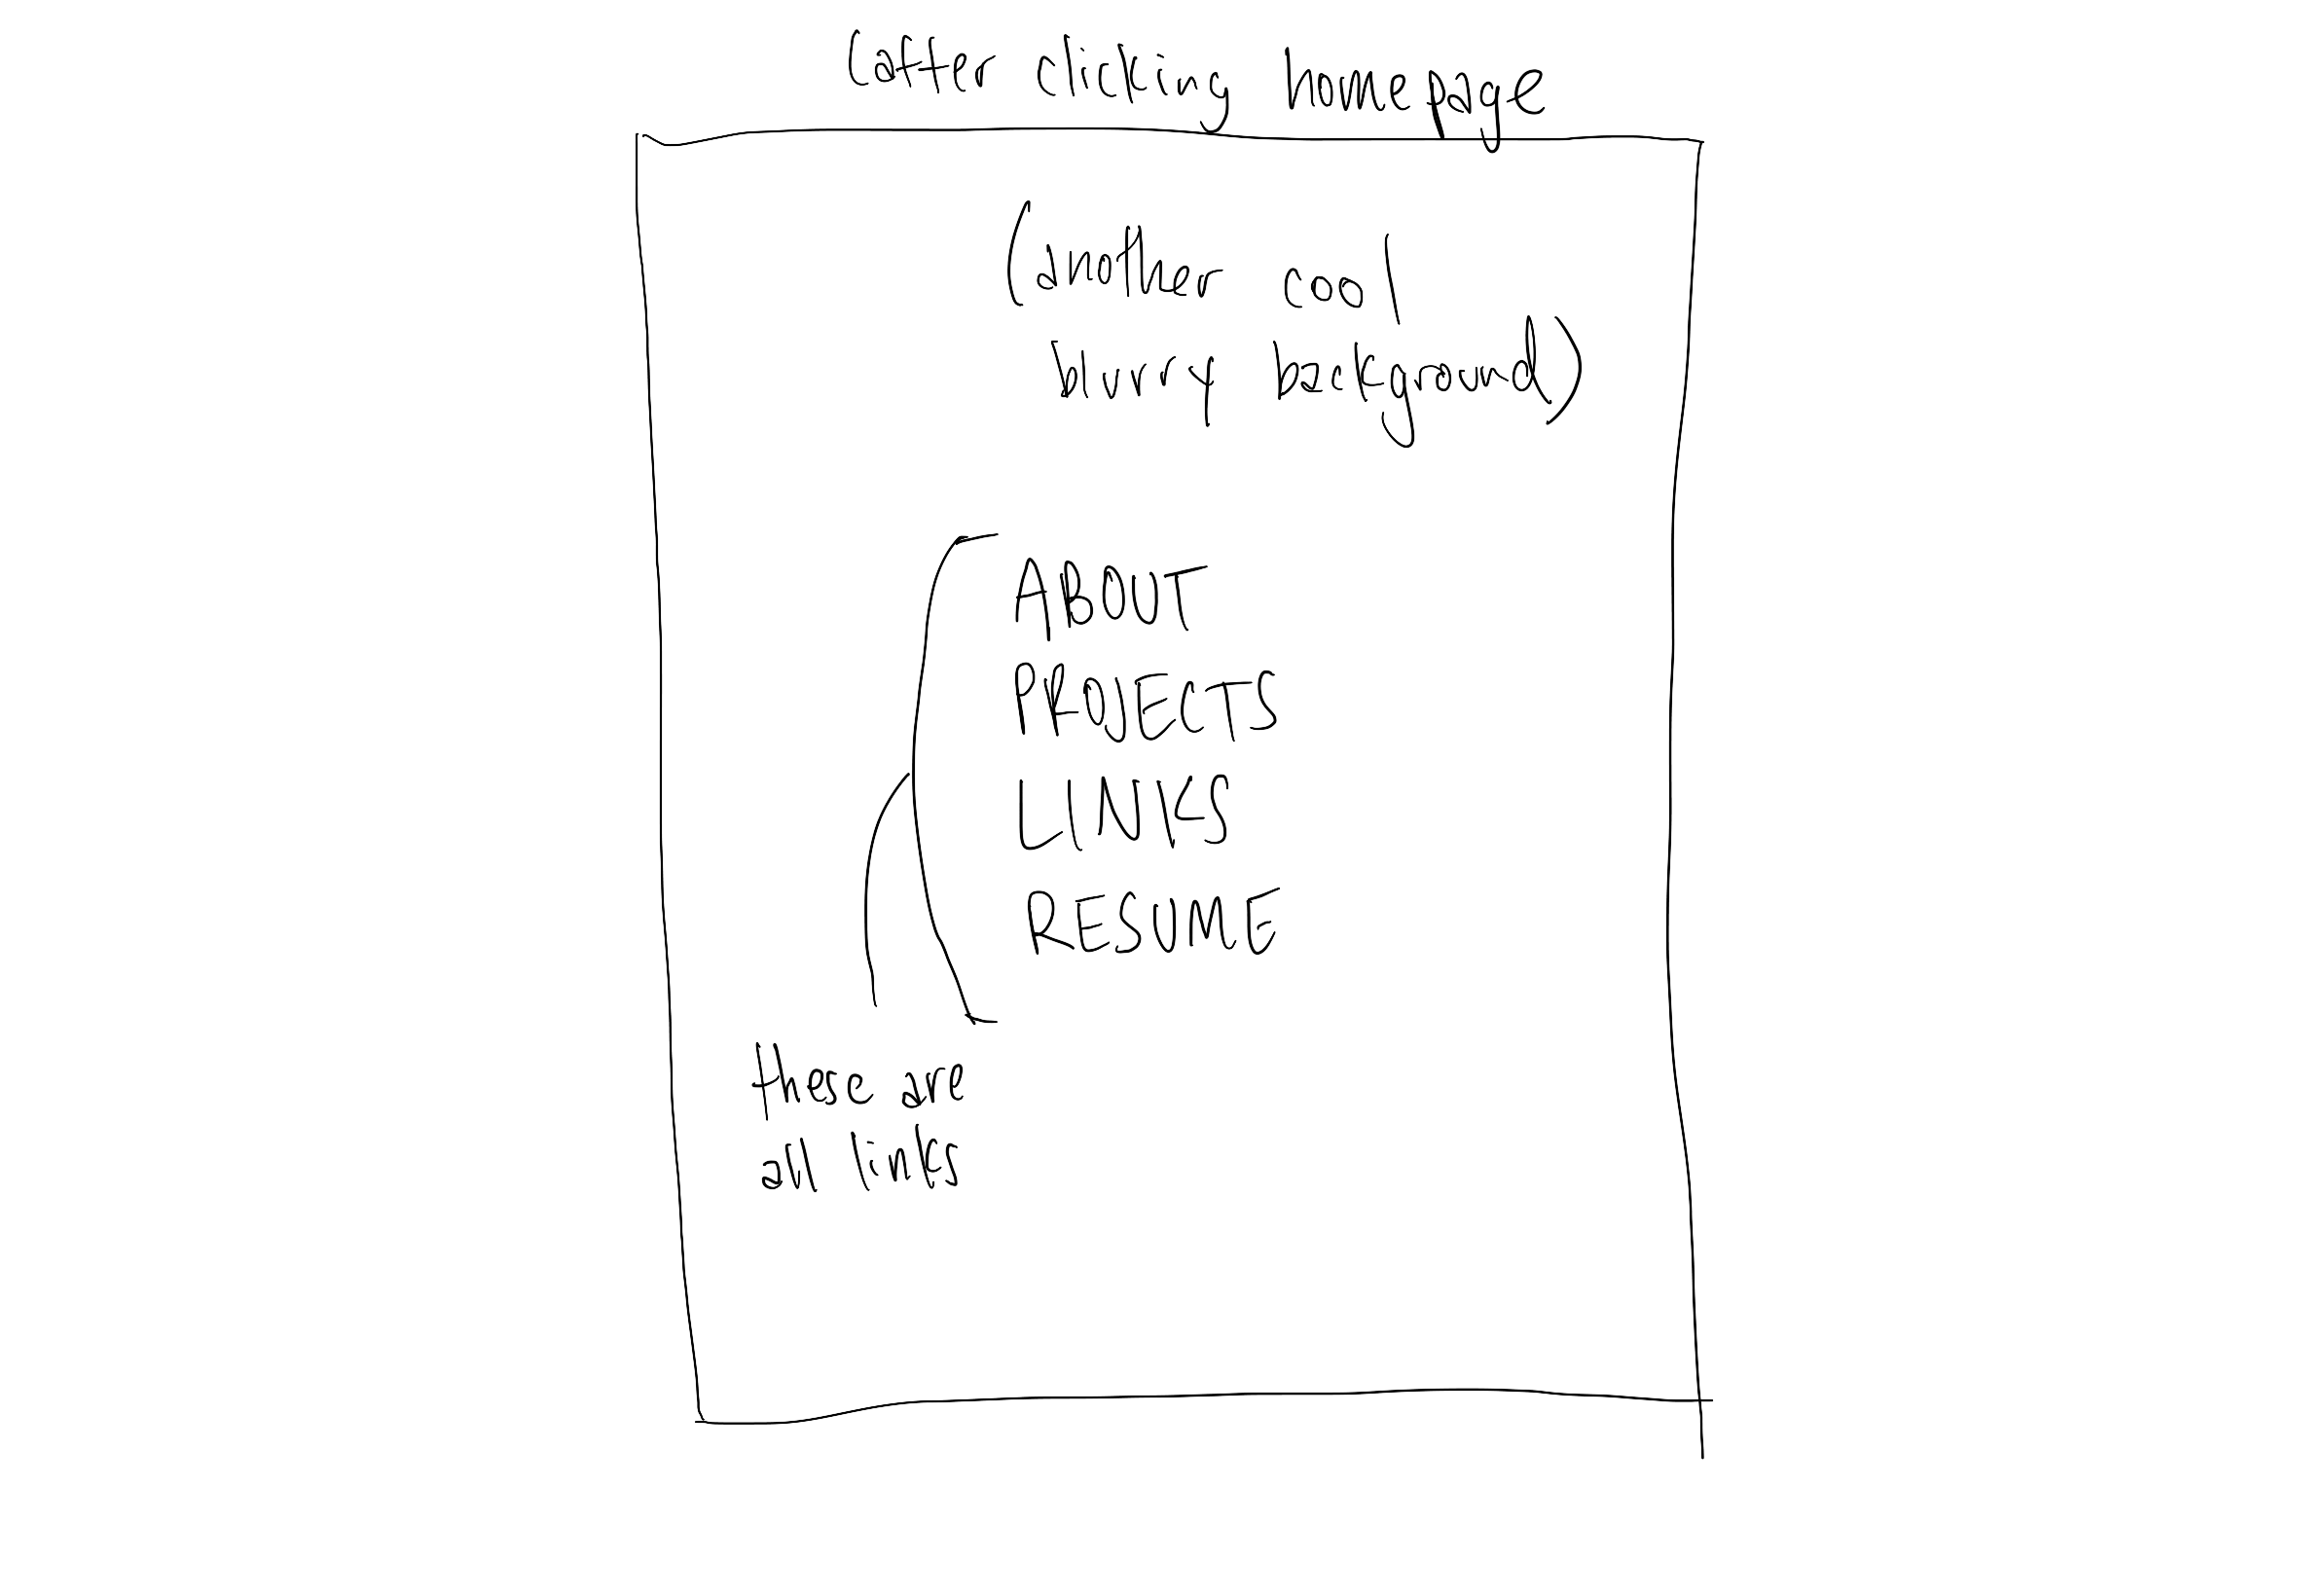 (after clicking homepage
(another cool
blurry background)
ABOUT
PROJECTS
LINKS
RESUME
these are
all links